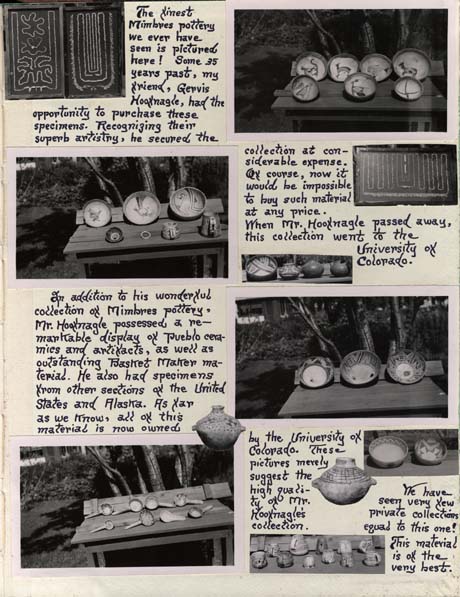 The finest
Mimbres pottery
we ever have
seen is pictured
here! Some 35
years past, my
friend, Gervis
Hoofnagle, had the
opportunity to purchase these
specimens. Recognizing their
superb artistry, he secured the
collection at con-
siderable expense.
Of course, now it
would be impossible
to buy such material
at any price.
When Mr. Hoofnagle passed away,
this collection went to the
University of
Colorado.
In addition to his wonderful
collection of Mimbres pottery,
Mr. Hoofnagle possessed a re-
markable display of Pueblo cera-
mics and artifacts, as well as
outstanding Basket Maker ma-
terial. He also had specimens
from other sections of the United
States and Alaska. As far
as we know, all of this
material is now owned
by the University of
Colorado. These
pictures merely
suggest the
high quali-
ty of Mr.
Hoofnagle's
collection.
We have
seen very few
private collections
equal to this one!
This material
is of the
very best.